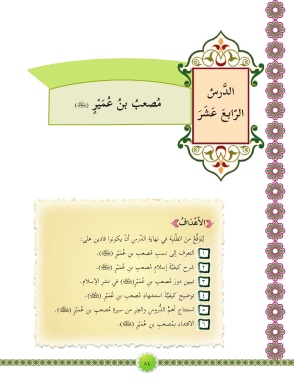 الدَّرسُ
الرّابعَ عَشَرَ
مُصعبُ بنُ عُمَيْرٍ (رضي الله عنه)
الأَهْدَافُ
يُتَوقَّعُ من الطَّلَبةِ في نهايةِ الدَّرسِ أَنْ يكونوا قادرين على:
١ التعرف إلى نسبِ مُصعبِ بنِ عُمَيْرٍ (رضي الله عنه).
٢ شرحِ كيفيَّةِ إسلامِ مُصعبِ بنِ عُمَيْرٍ (رضي الله عنه).
٣ تبيين دورِ مُصعبِ بنِ عُمَيْرٍ (رضي الله عنه) في نشرِ الإسلامِ.
٤ توضيحِ كيفيَّةِ استشهادِ مُصعبِ بنِ عُمَيْرٍ (رضي الله عنه).
٥ استنتاجِ أهمِّ الدُّروسِ والعِبَرِ من سيرةِ مُصعبِ بنِ عُمَيْرٍ (رضي الله عنه).
٦ الاقتداءِ بمُصعبِ بنِ عُمَيْرٍ (رضي الله عنه).
٨٤